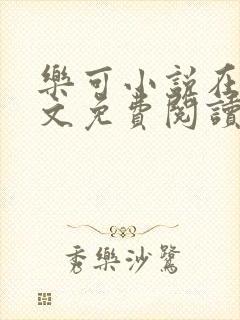 樂可小說在
文免費閱讀
秀樂沙鷺